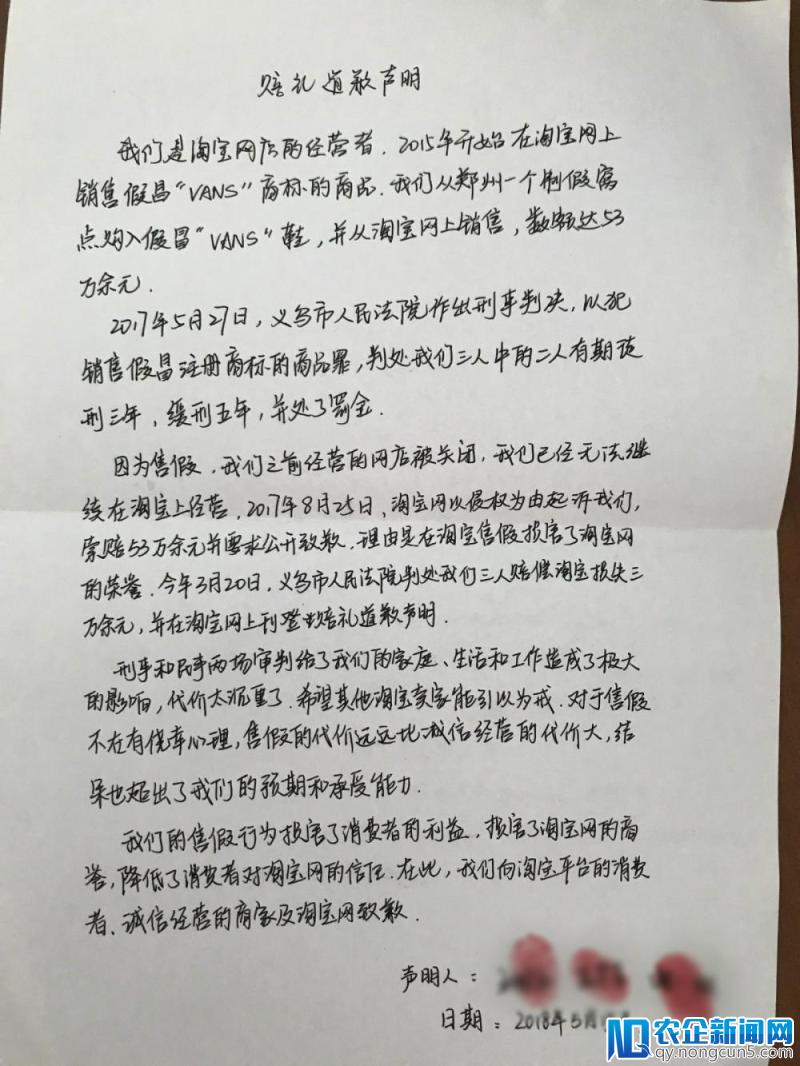 赔礼道歉声明
我们是淘宝网店的经营者.2015年开始在淘宝网上
销售假冒“VANS”商标的商品.我们从郑州一个制假窝
点购入假冒“VANS”鞋,并从淘宝网上销售,数额达53
万余元.
2017年5月27日,义乌市人民法院作出刑事判决,以犯
销售假冒注册商标的商品罪,判处我们三人中的二人有期徒
刑三年,缓刑五年,并处了罚金.
因为售假,我们之前经营的网店被关闭,我们已经无法继
续在淘宝上经营.2017年8月25日,淘宝网以侵权为由起诉我们,
索赔53万余元并要求公开致歉.理由是在淘宝售假损害了淘宝网
的荣誉.今年3月20日,义乌市人民法院判处我们三人赔偿淘宝损失三
万余元,并在淘宝网上刊登出赔礼道歉声明.
刑事和民事两场审判给了我们的家庭、生活和工作造成了极大
的影响,代价太沉重了.希望其他淘宝卖家能引以为戒.对于售假
不在有侥幸心理,售假的代价远远比诚信经营的代价大,结
果也超出了我们的预期和承受能力.
我们的售假行为损害了消费者的利益,损害了淘宝网的商
誉,降低了消费者对淘宝网的信任.在此,我们向淘宝平台的消费
者、诚信经营的商家及淘宝网致歉.
声明人:
日期:2018年5月
农企新闻网
qy.nongcun5.com